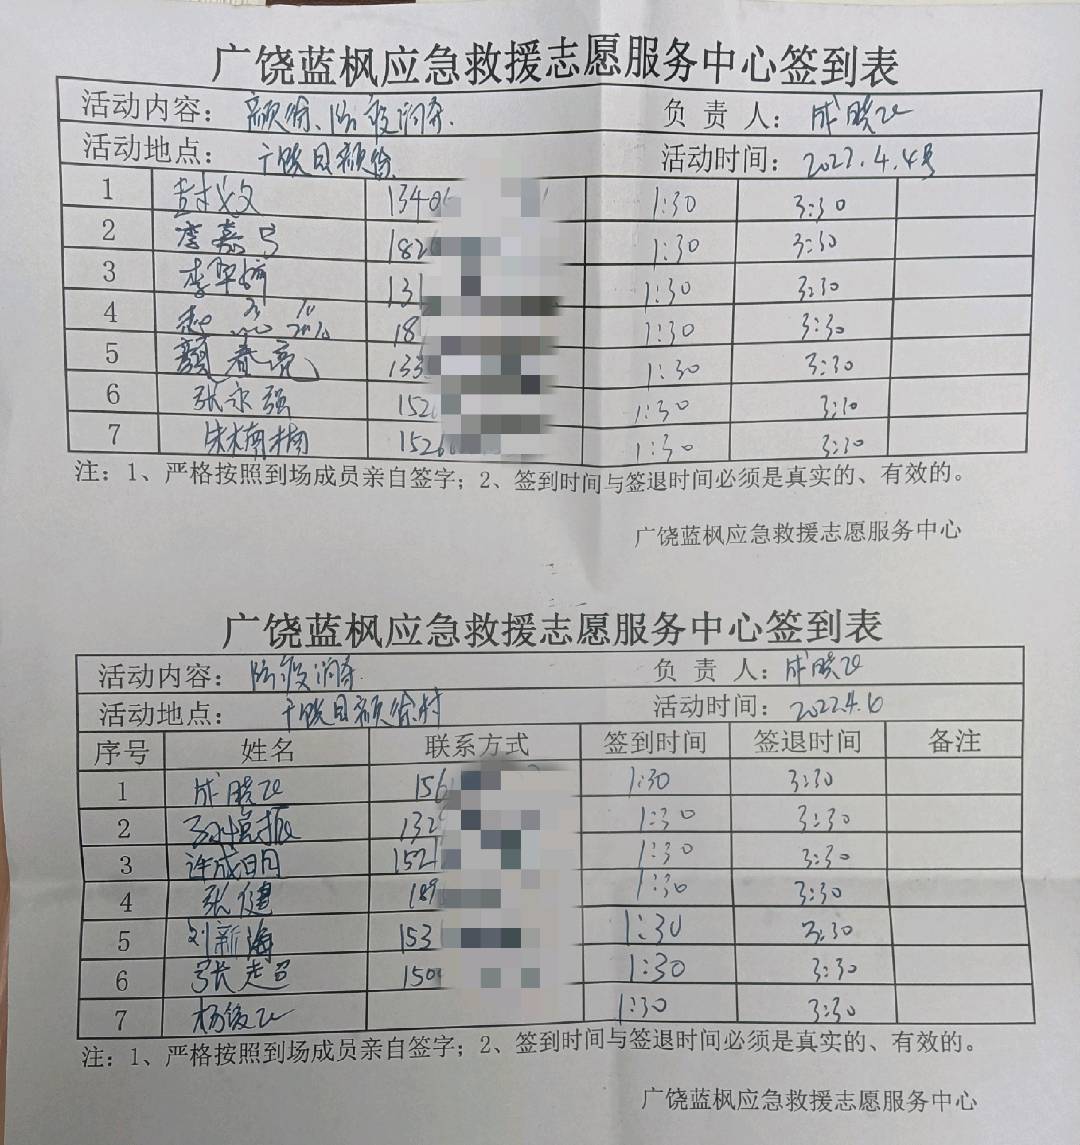 广饶蓝枫应急救援志愿服务中心签到表
活动内容：颜徐、防疫消杀. 负责人：成晓飞
活动地点：大王镇颜徐 活动时间：2022.4.4号
1 1340 1:30 3:30
2 李嘉 182 1:30 3:30
3 李翠娇 131 1:30 3:30
4 18 1:30 3:30
5 颜春亮 133 1:30 3:30
6 张永强 152 1:30 3:30
7 朱楠楠 1526 1:30 3:30
注：1、严格按照到场成员亲自签字；2、签到时间与签退时间必须是真实的、有效的。
广饶蓝枫应急救援志愿服务中心
广饶蓝枫应急救援志愿服务中心签到表
活动内容：防疫消杀 负责人：成晓飞
活动地点：颜徐村 活动时间：2022.4.6
序号 姓名 联系方式 签到时间 签退时间 备注
1 成晓飞 156 1:30 3:30
2 132 1:30 3:30
3 许成明 152 1:30 3:30
4 张健 189 1:30 3:30
5 刘新海 153 1:30 3:30
6 张志超 150 1:30 3:30
7 杨俊飞 1:30 3:30
注：1、严格按照到场成员亲自签字；2、签到时间与签退时间必须是真实的、有效的。
广饶蓝枫应急救援志愿服务中心